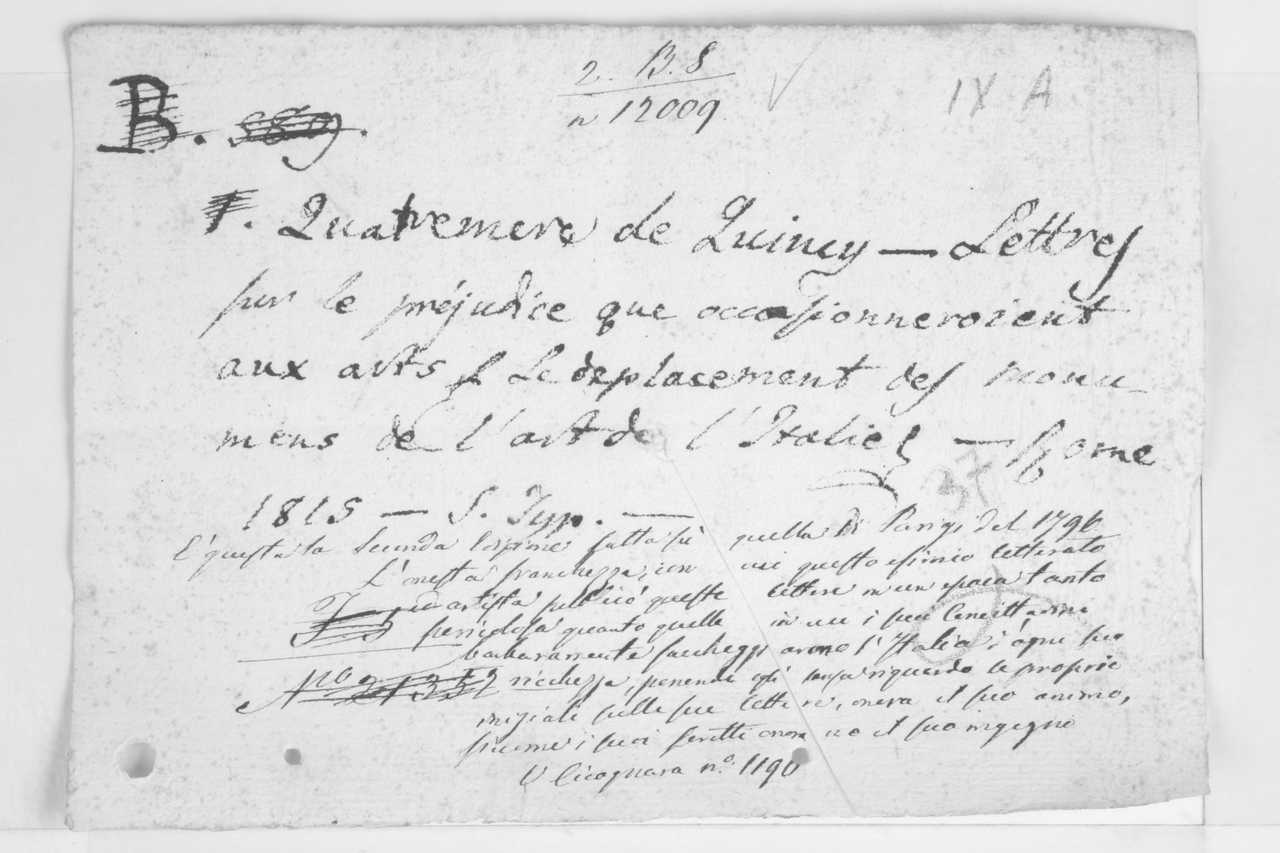 2. B. 8
n 12009
IX A
B.
Quatremere de Quincy — Lettres
sur le préjudice que occasionneroient
aux arts le deplacement des monu
mens de l'art de l'Italie — Rome
1815 — S. Typ. —
37
È questa la seconda edizione fatta su quella di Parigi del 1796
L'onestà franchezza, con cui questo esimio letterato
ed artista publicò queste lettere in un epoca tanto
pericolosa quanto quella in cui i suoi Concittadini
barbaramente saccheggiarono l'Italia d'ogni sua
ricchezza, ponendo egli senza riguardo le proprie
iniziali sulle sue lettere, onora il suo animo,
siccome i suoi scritti onorano il suo ingegno
V Cicognara n.º 1190